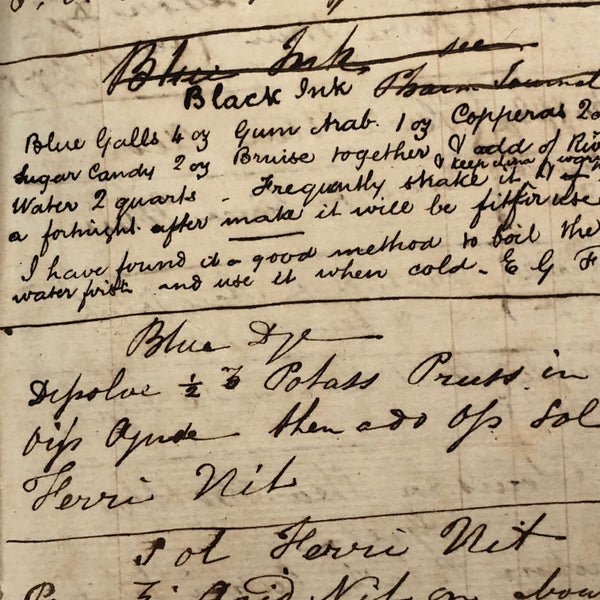 Blue Ink see
Black Ink Pharm Journal
Blue Galls 4 oz Gum Arab. 1 oz Copperas 2
Sugar Candy 2 oz Bruise together & add of
Water 2 quarts - Frequently shake it &
a fortnight after make it will be fit for use
I have found it a good method to boil the
water first and use it when cold - E G F
Blue Dye
Dissolve ½ ℥ Potass Pruss in
then add Oss Sol
Ferri Nit
Sol Ferri Nit
Acid Nit